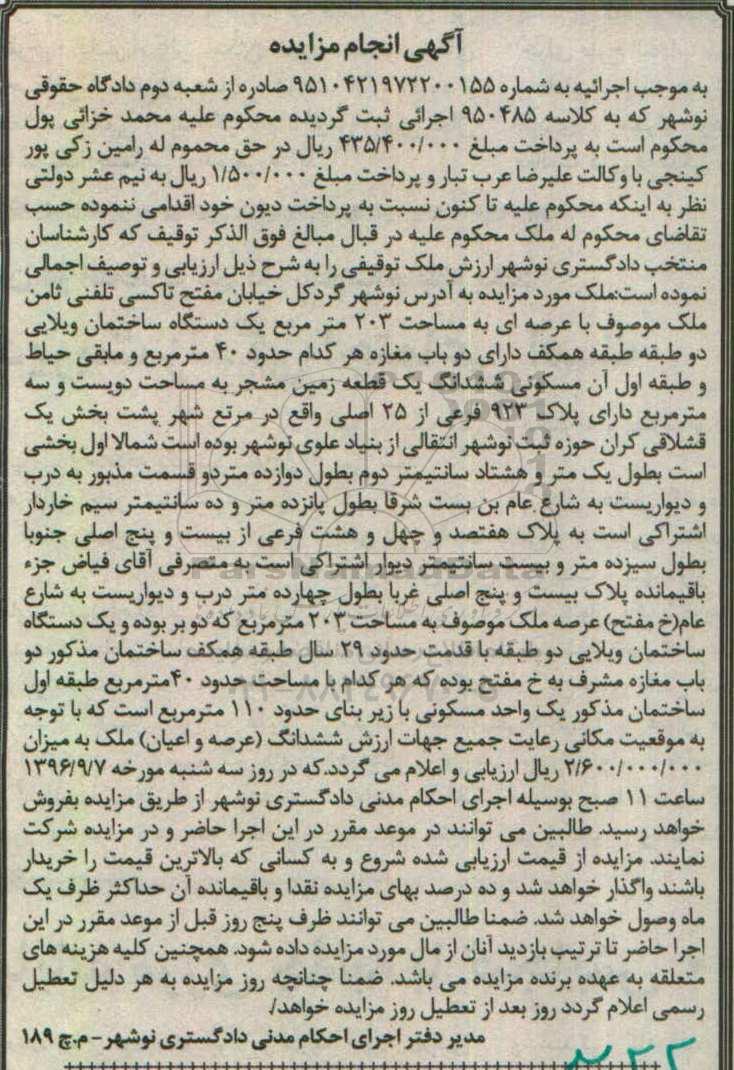 آگهی انجام مزایده
به موجب اجرائیه به شماره ۹۵۱۰۴۲۱۹۷۲۲۰۰۱۵۵ صادره از شعبه دوم دادگاه حقوقی
نوشهر که به کلاسه ۹۵۰۴۸۵ اجرائی ثبت گردیده محکوم علیه محمد خزائی پول
محکوم است به پرداخت مبلغ ۴۳۵/۴۰۰/۰۰۰ ریال در حق محموم له رامین زکی پور
کینجی با وکالت علیرضا عرب تبار و پرداخت مبلغ ۱/۵۰۰/۰۰۰ ریال به نیم عشر دولتی
نظر به اینکه محکوم علیه تا کنون نسبت به پرداخت دیون خود اقدامی ننموده حسب
تقاضای محکوم له ملک محکوم علیه در قبال مبالغ فوق الذکر توقیف که کارشناسان
منتخب دادگستری نوشهر ارزش ملک توقیفی را به شرح ذیل ارزیابی و توصیف اجمالی
نموده است:ملک مورد مزایده به آدرس نوشهر گردکل خیابان مفتح تاکسی تلفنی ثامن
ملک موصوف با عرصه ای به مساحت ۲۰۳ متر مربع یک دستگاه ساختمان ویلایی
دو طبقه طبقه همکف دارای دو باب مغازه هر کدام حدود ۴۰ مترمربع و مابقی حیاط
و طبقه اول آن مسکونی ششدانگ یک قطعه زمین مشجر به مساحت دویست و سه
مترمربع دارای پلاک ۹۲۳ فرعی از ۲۵ اصلی واقع در مرتع شهر پشت بخش یک
قشلاقی کران حوزه ثبت نوشهر انتقالی از بنیاد علوی نوشهر بوده است شمالا اول بخشی
است بطول یک متر و هشتاد سانتیمتر دوم بطول دوازده متردو قسمت مذبور به درب
و دیواریست به شارع عام بن بست شرقا بطول پانزده متر و ده سانتیمتر سیم خاردار
اشتراکی است به پلاک هفتصد و چهل و هشت فرعی از بیست و پنج اصلی جنوبا
بطول سیزده متر و بیست سانتیمتر دیوار اشتراکی است به متصرفی آقای فیاض جزء
باقیمانده پلاک بیست و پنج اصلی غربا بطول چهارده متر درب و دیواریست به شارع
عام(خ مفتح) عرصه ملک موصوف به مساحت ۲۰۳ مترمربع که دو بر بوده و یک دستگاه
ساختمان ویلایی دو طبقه با قدمت حدود ۲۹ سال طبقه همکف ساختمان مذکور دو
باب مغازه مشرف به خ مفتح بوده که هر کدام با مساحت حدود ۴۰مترمربع طبقه اول
ساختمان مذکور یک واحد مسکونی با زیر بنای حدود ۱۱۰ مترمربع است که با توجه
به موقعیت مکانی رعایت جمیع جهات ارزش ششدانگ (عرصه و اعیان) ملک به میزان
۲/۶۰۰/۰۰۰/۰۰۰ ریال ارزیابی و اعلام می گردد.که در روز سه شنبه مورخه ۱۳۹۶/۹/۷
ساعت ۱۱ صبح بوسیله اجرای احکام مدنی دادگستری نوشهر از طریق مزایده بفروش
خواهد رسید. طالبین می توانند در موعد مقرر در این اجرا حاضر و در مزایده شرکت
نمایند. مزایده از قیمت ارزیابی شده شروع و به کسانی که بالاترین قیمت را خریدار
باشند واگذار خواهد شد و ده درصد بهای مزایده نقدا و باقیمانده آن حداکثر ظرف یک
ماه وصول خواهد شد. ضمنا طالبین می توانند ظرف پنج روز قبل از موعد مقرر در این
اجرا حاضر تا ترتیب بازدید آنان از مال مورد مزایده داده شود. همچنین کلیه هزینه های
متعلقه به عهده برنده مزایده می باشد. ضمنا چنانچه روز مزایده به هر دلیل تعطیل
رسمی اعلام گردد روز بعد از تعطیل روز مزایده خواهد/.
مدیر دفتر اجرای احکام مدنی دادگستری نوشهر - م.چ ۱۸۹